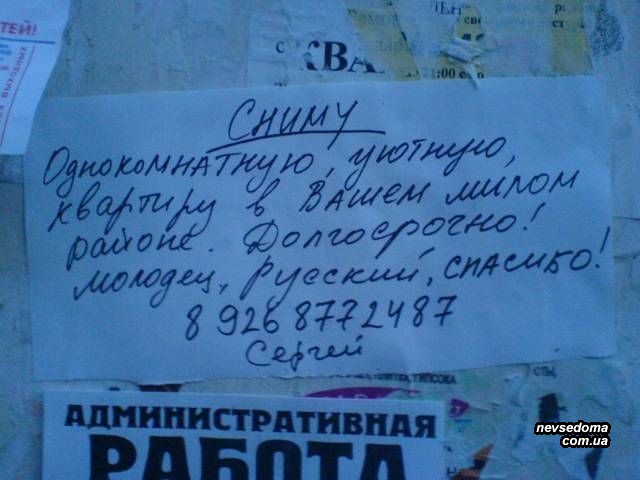 ТЕЙ!
КВА
СНИМУ
Однокомнатную, уютную,
квартиру в Вашем милом
районе. Долгосрочно!
молодец, Русский, спасибо!
8 926 8772487
Сергей
АДМИНИСТРАТИВНАЯ
РАБОТА
nevsedoma
com.ua